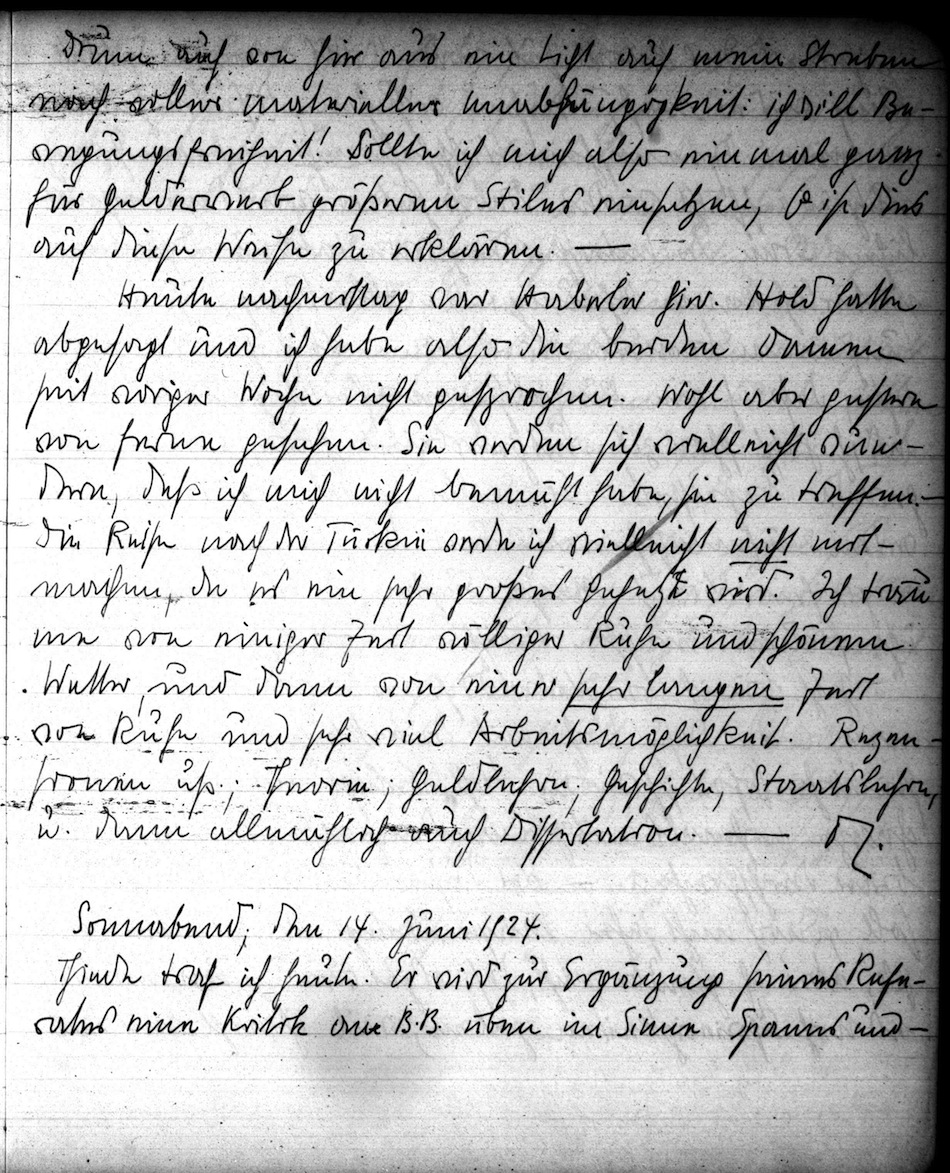 Drum auch von hier aus ein Licht auf mein Streben
nach voller materieller Unabhängigkeit: ich will Be-
wegungsfreiheit! Sollte ich mich also einmal ganz
für Gelderwerb größeren Stiles einsetzen, so ist dies
auf diese Weise zu erklären. —
Heute nachmittag war Haberler hier. Hold hatte
abgesagt und ich habe also die beiden Damen
seit voriger Woche nicht gesprochen. Wohl aber gestern
von ferne gesehen. Sie werden sich vielleicht wun-
dern, daß ich mich nicht bemüht habe, sie zu treffen. —
Die Reise nach der Türkei werde ich vielleicht nicht mit-
machen, da es ein sehr großes Gehetze wird. Ich träu
me von einiger Zeit völliger Ruhe und schönem
Wetter, und dann von einer sehr langen Zeit
von Ruhe und sehr viel Arbeitsmöglichkeit. Rezen-
sionen usf.; Theorie; Geldlehre; Geschichte, Staatslehre,
u. dann allmählich auch Dissertation. —
Sonnabend, den 14. Juni 1924.
Thiede traf ich heute. Er wird zur Ergänzung seines Refe-
rates eine Kritik am B.B. üben im Sinne Spanns und-